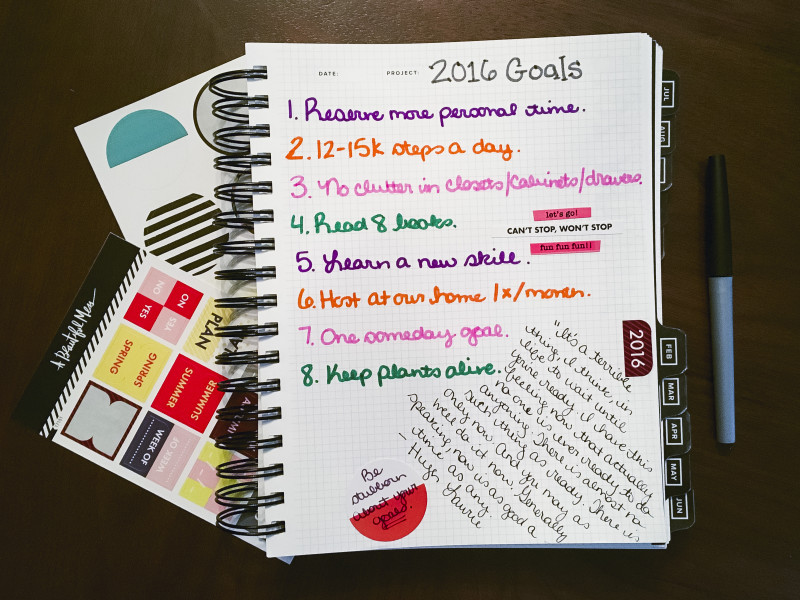 DATE:
PROJECT:
2016 Goals
1. Reserve more personal time.
2. 12-15k steps a day.
3. No clutter in closets/cabinets/drawers.
4. Read 8 books.
let's go!
CAN'T STOP, WON'T STOP
fun fun fun!!
5. Learn a new skill.
6. Host at our home 1x/month.
7. One someday goal.
8. Keep plants alive.
"It's a terrible
thing, I think, in
life to wait until
you're ready. I have this
feeling now that actually
no one is ever ready to do
anything. There is almost no
such thing as ready. There is
only now. And you may as
well do it now. Generally
speaking now is as good a
time as any.
– Hugh Laurie
Be
stubborn
about your
goals.
JUL
AUG
2016
FEB
MAR
APR
MAY
JUN
A Beautiful Mess
NO
YES
ON
YES
PLAN
SPRING
SPRING
SUMMER
SUMMER
WEEK OF
WEEK OF